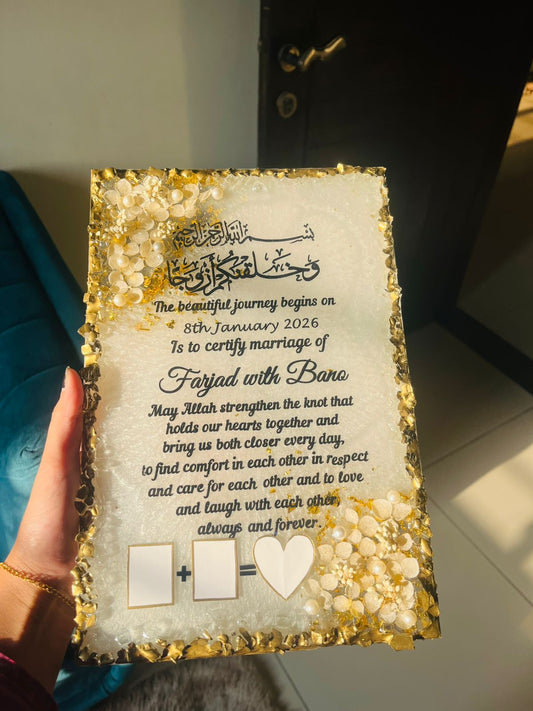 بسم الله الرحمن الرحيم
وخلقنكم أزوجا
The beautiful journey begins on
8th January 2026
Is to certify marriage of
Farjad with Bano
May Allah strengthen the knot that
holds our hearts together and
bring us both closer every day,
to find comfort in each other in respect
and care for each other and to love
and laugh with each other,
always and forever.
+ =